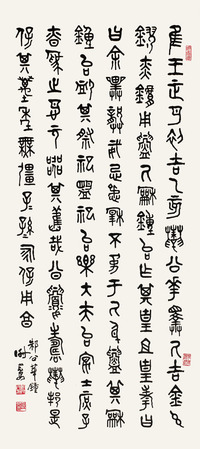 隹王正月初吉乙亥邾公華擇厥吉金玄
鏐赤鏞用鑄厥龢鐘台乍其皇且皇考
曰余畢龏威忌盄穆不彖于厥身鑄其龢
鐘台卹其祭祀盟祀台樂大夫台宴士庶子
昚為之名元器其舊哉公眉壽邾邦是
保其萬年無疆子孫永保用享
邾公華鐘